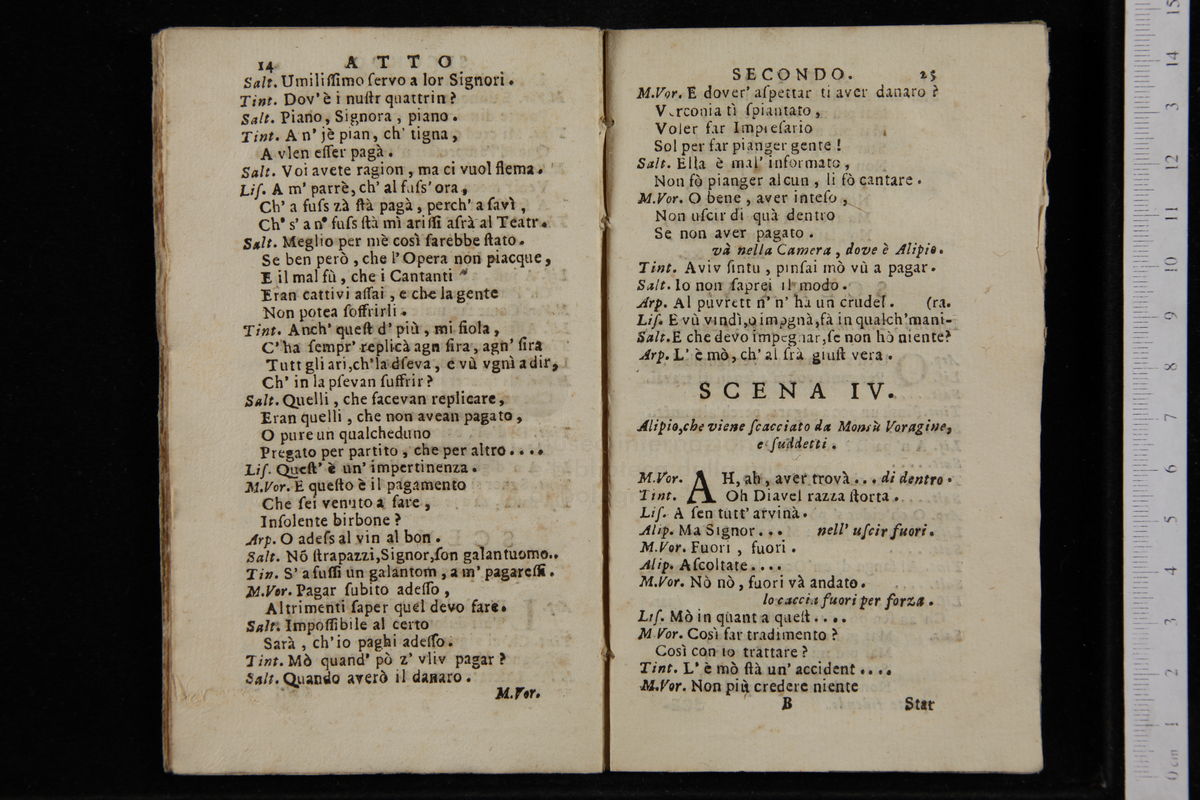 14 ATTO
Salt. Umiliſſimo ſervo a lor Signori.
Tint. Dov' è i nuſtr quattrin?
Salt. Piano, Signora, piano.
Tint. A n' jè pian, ch' tigna,
A vlen eſſer pagà.
Salt. Voi avete ragion, ma ci vuol flema.
Liſ. A m' parrè, ch' al fuſs' ora,
Ch' a fuſs zà ſtà pagà, perch' a ſavì,
Ch' s' a n' fuſs ſtà mì ariſſi aſrà al Teatr.
Salt. Meglio per mè così ſarebbe ſtato.
Se ben però, che l' Opera non piacque,
E il mal fù, che i Cantanti
Eran cattivi aſſai, e che la gente
Non potea ſoffrirli.
Tint. Anch' queſt d' più, mi fiola,
C' ha ſempr' replicà agn ſira, agn' ſira
Tutt gli ari, ch' la dſeva, e vù vgnì a dir,
Ch' in la pſevan ſuffrir?
Salt. Quelli, che facevan replicare,
Eran quelli, che non avean pagato,
O pure un qualcheduno
Pregato per partito, che per altro....
Liſ. Queſt' è un' impertinenza.
M.Vor. E queſto è il pagamento
Che ſei venuto a fare,
Inſolente birbone?
Arp. O adeſs al vin al bon.
Salt. Nō ſtrapazzi, Signor, ſon galantuomo..
Tin. S' a fuſſi un galantom, a m' pagareſſi.
M.Vor. Pagar ſubito adeſſo,
Altrimenti ſaper quel devo fare.
Salt. Impoſſibile al certo
Sarà, ch' io paghi adeſſo.
Tint. Mò quand' pò z' vliv pagar?
Salt. Quando averò il danaro.
M.Vor.
SECONDO. 25
M.Vor. E dover' aſpettar ti aver danaro?
Verconia tì ſpiantato,
Voler far Impreſario
Sol per far pianger gente!
Salt. Ella è mal' informato,
Non fò pianger alcun, li fò cantare.
M.Vor. O bene, aver inteſo,
Non uſcir di quà dentro
Se non aver pagato.
và nella Camera, dove è Alipio.
Tint. Aviv ſintu, pinſai mò vù a pagar.
Salt. Io non ſaprei il modo.
Arp. Al puvrett n' n' hà un crudel. (ra.
Liſ. E vù vindì, o impgnà, fà in qualch' mani-
Salt. E che devo impegnar, ſe non hò niente?
Arp. L' è mò, ch' al ſrà giuſt vera.
SCENA IV.
Alipio, che viene ſcacciato da Monsù Voragine,
e ſuddetti.
M.Vor. AH, ah, aver trovà... di dentro.
Tint. Oh Diavel razza ſtorta.
Liſ. A ſen tutt' arvinà.
Alip. Ma Signor... nell' uſcir fuori.
M.Vor. Fuori, fuori.
Alip. Aſcoltate....
M.Vor. Nò nò, fuori và andato.
lo caccia fuori per forza.
Liſ. Mò in quant a queſt....
M Vor. Così far tradimento?
Così con io trattare?
Tint. L' è mò ſtà un' accident....
M.Vor. Non più credere niente
B Star